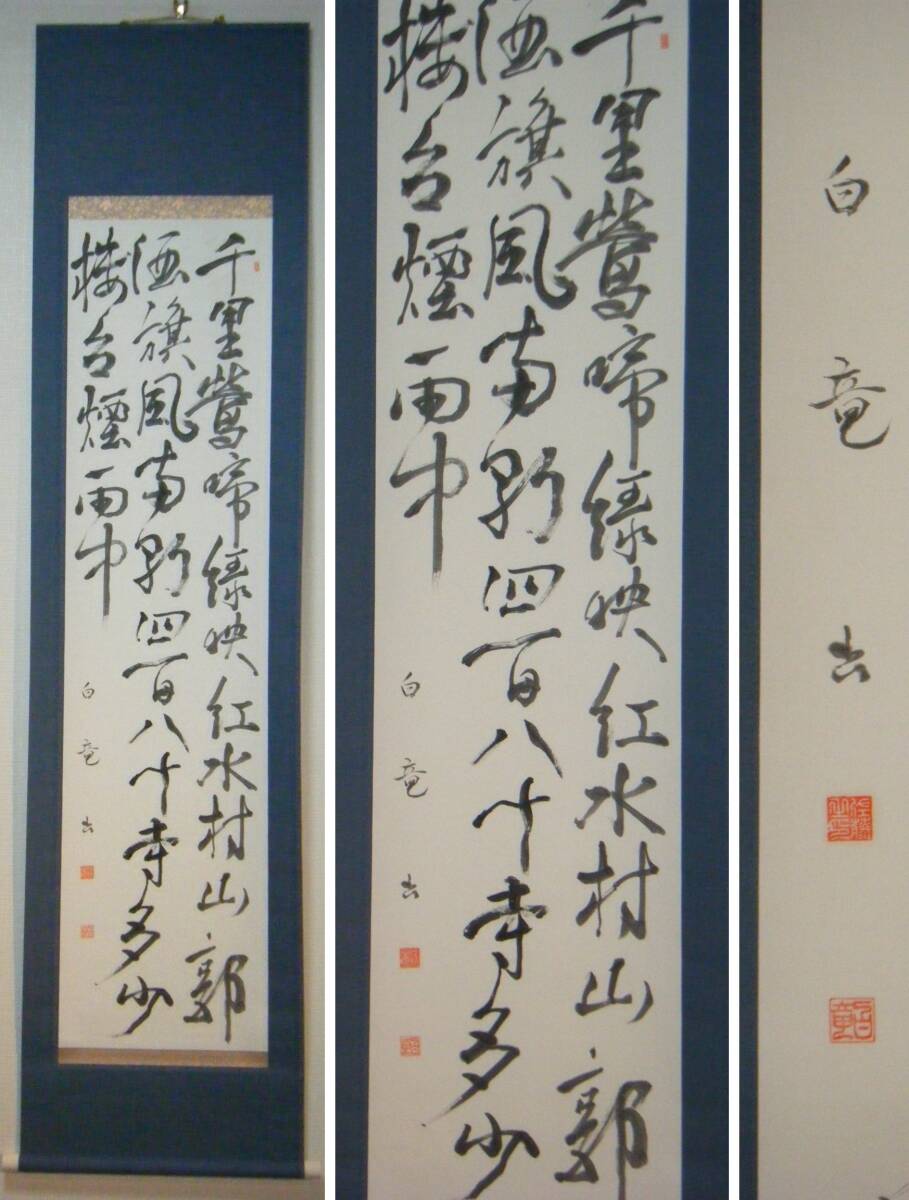 千里鶯啼緑映紅水村山郭
酒旗風南朝四百八十寺多少
楼台煙雨中
白竜書
千里鶯啼緑映紅水村山郭
酒旗風南朝四百八十寺多少
楼台煙雨中
白竜書
白竜書